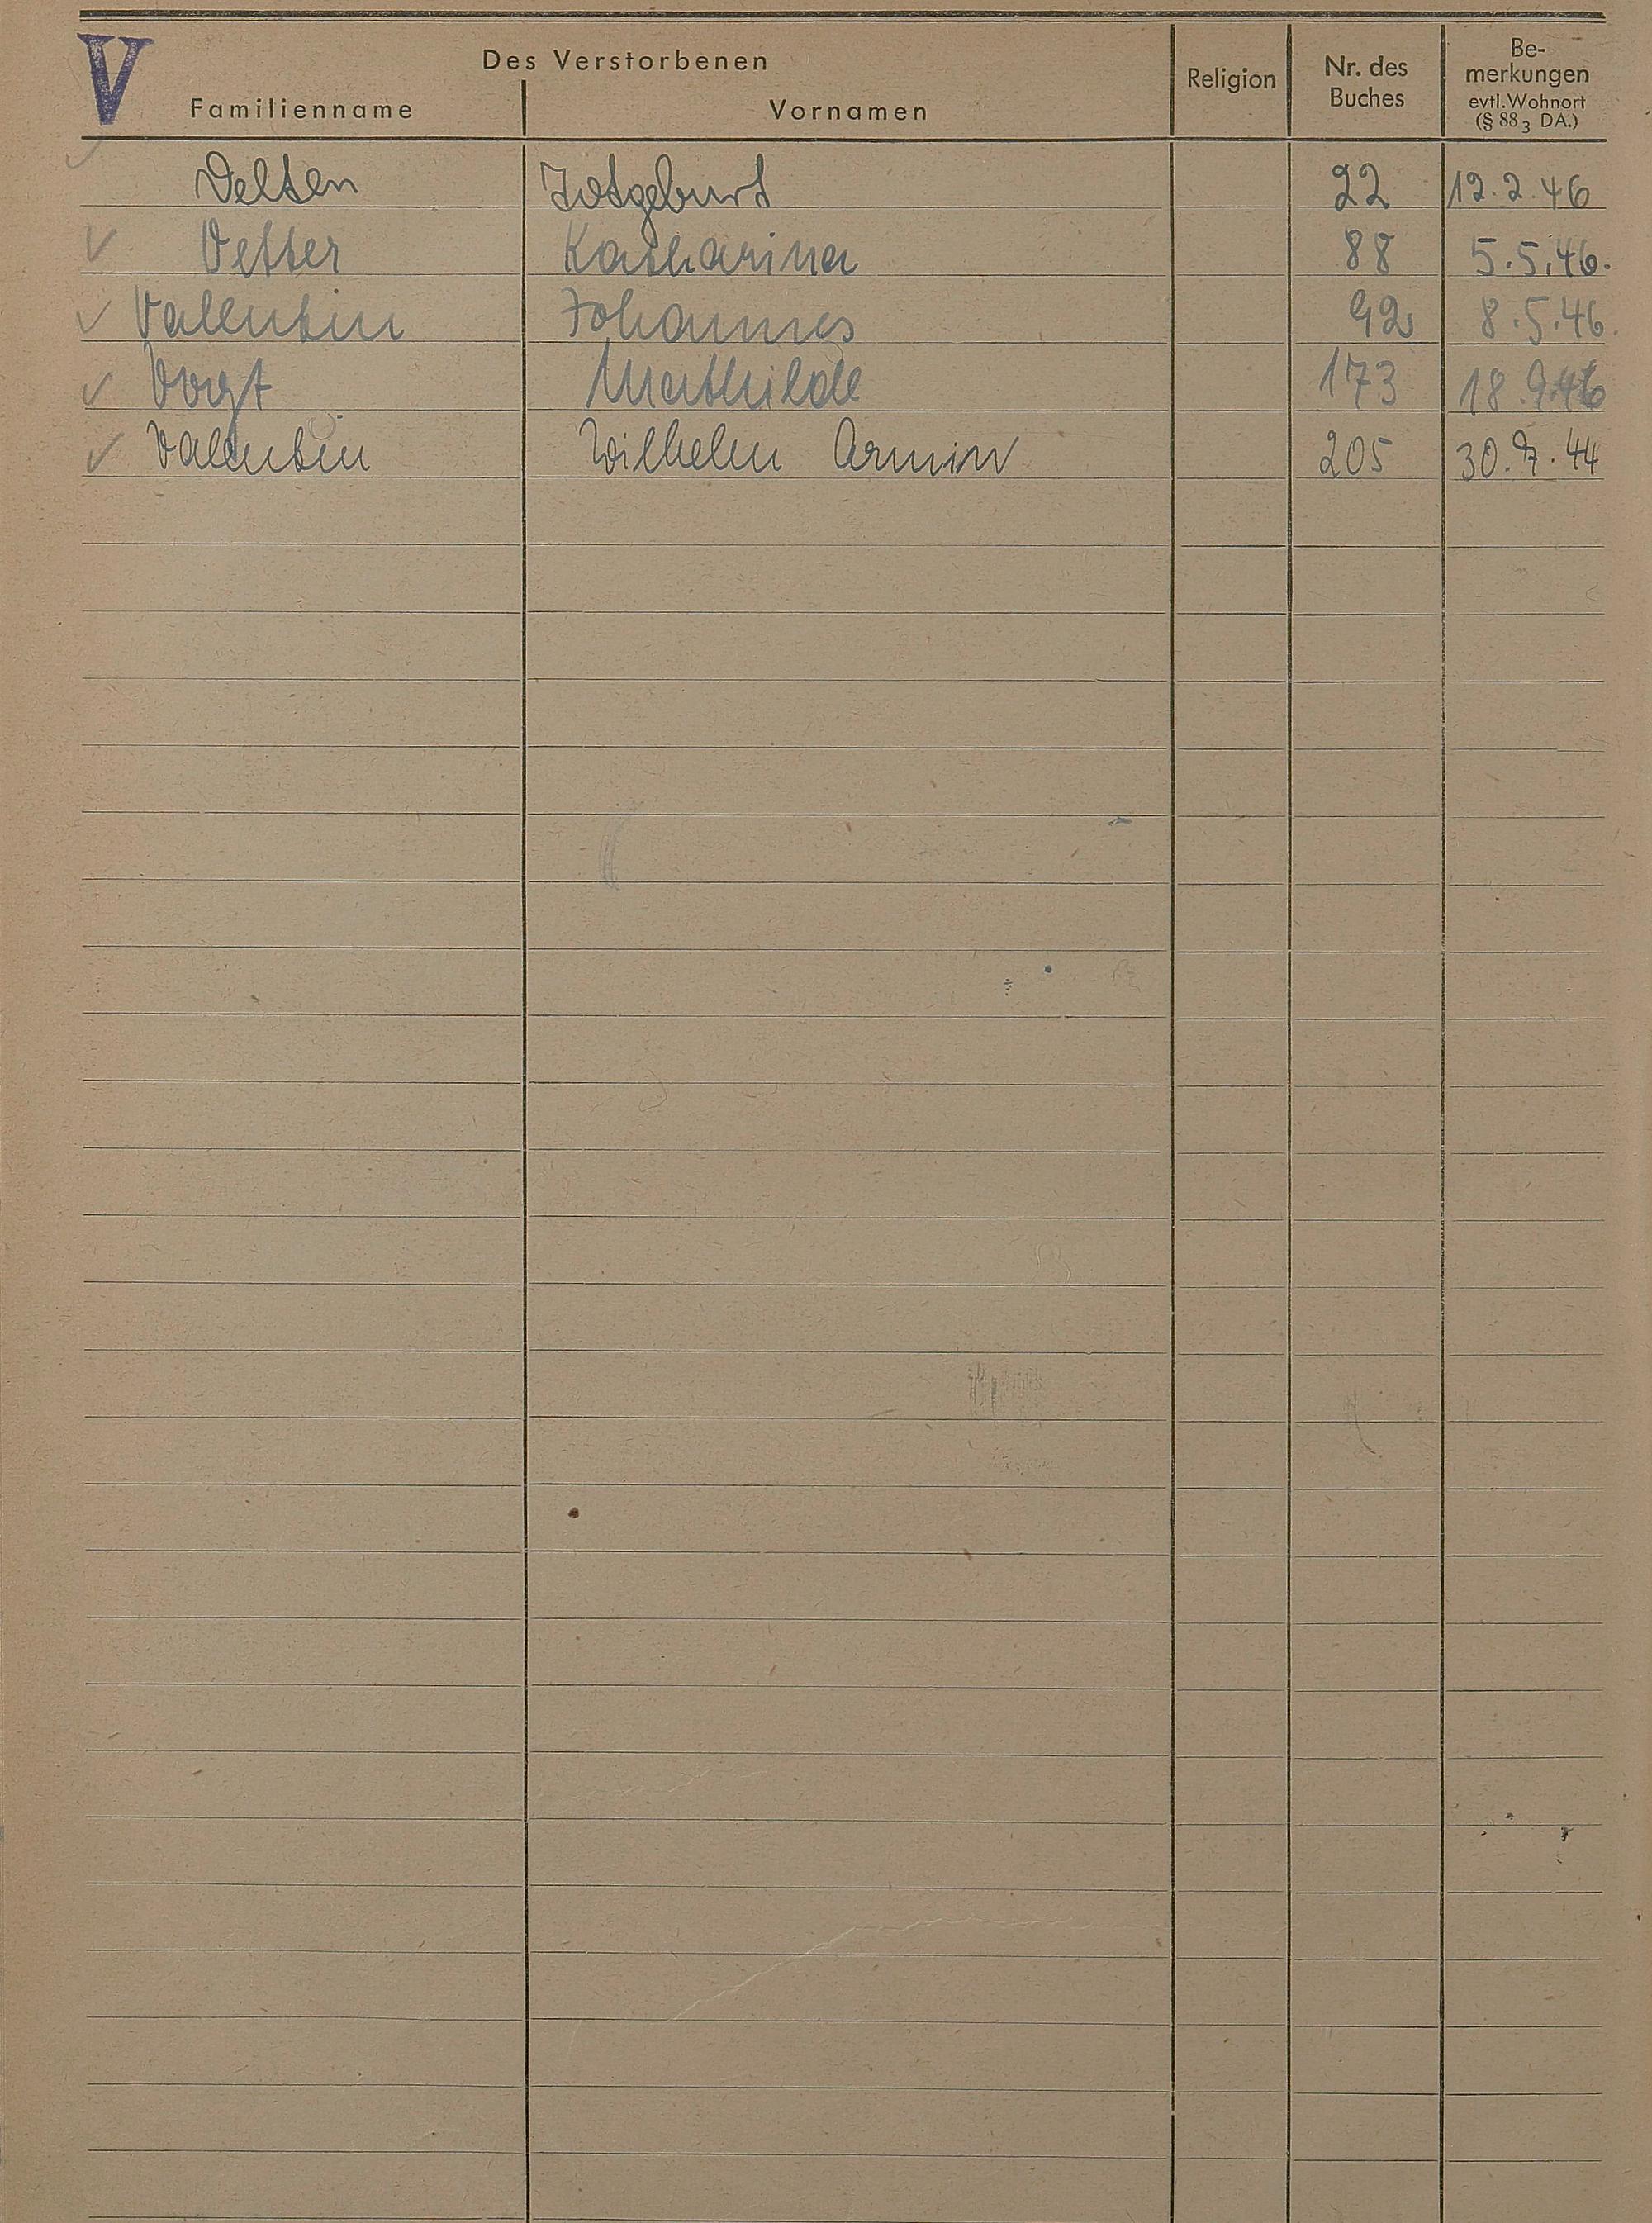 V
Des Verstorbenen
Familienname Vornamen Religion Nr. des Buches Be-merkungen evtl. Wohnort (§ 88 3 DA.)
Velten Totgeburt 22 12.2.46
Vetter Katharina 88 5.5.46.
Valentin Johannes 92 8.5.46.
Vogt Mathilde 173 18.9.46
Valentin Wilhelm Armin 205 30.7.44